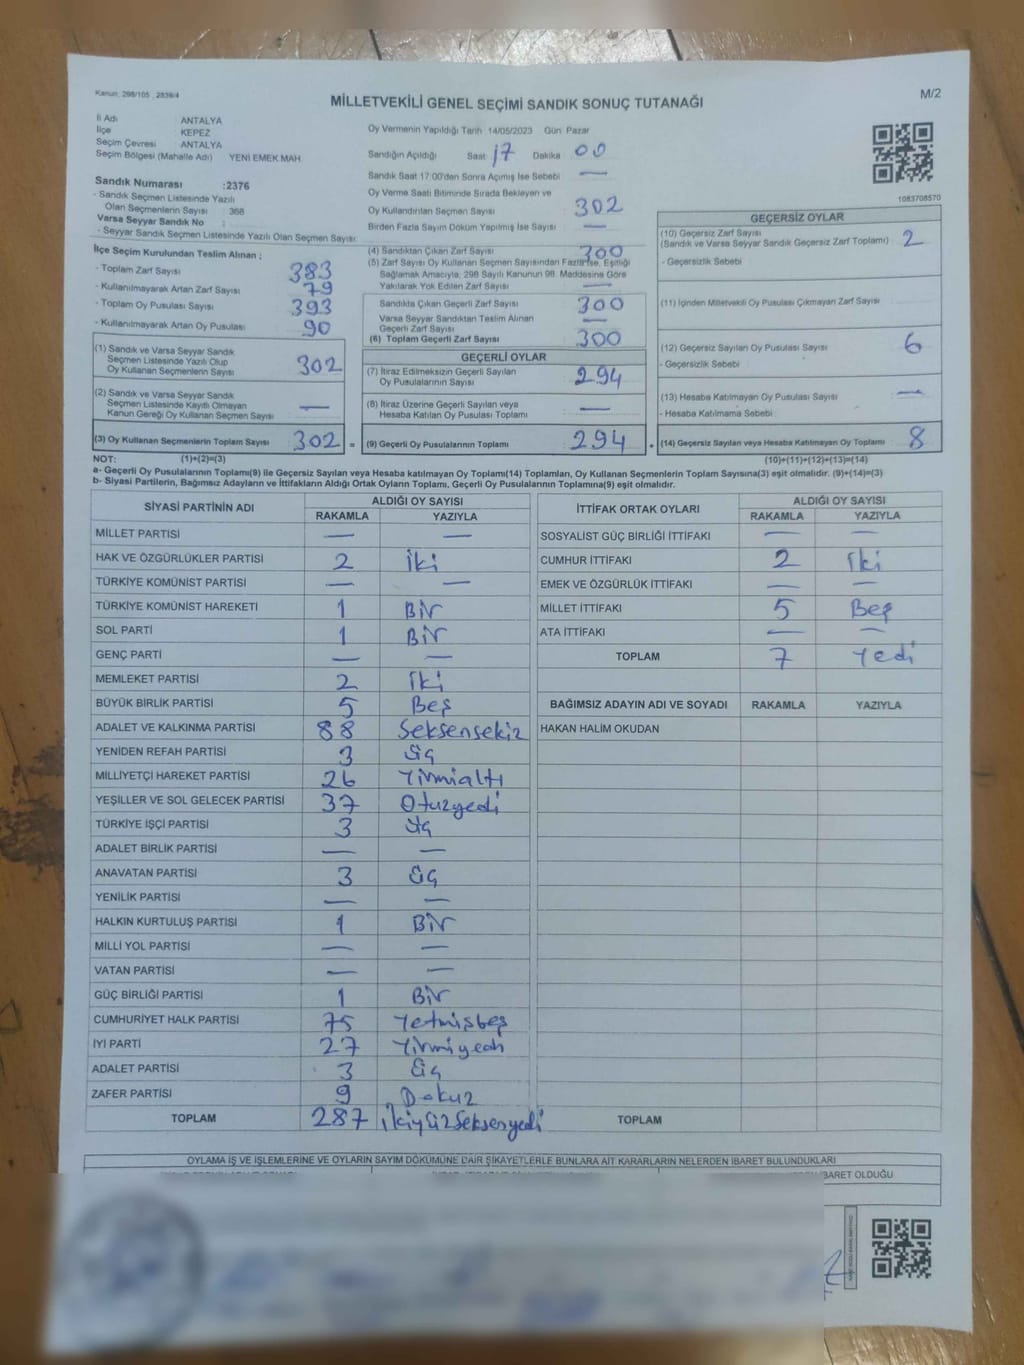 Kanun: 298/105 , 2839/4
MİLLETVEKİLİ GENEL SEÇİMİ SANDIK SONUÇ TUTANAĞI
M/2
İl Adı ANTALYA
İlçe KEPEZ
Seçim Çevresi ANTALYA
Seçim Bölgesi (Mahalle Adı) YENİ EMEK MAH.
Oy Vermenin Yapıldığı Tarih 14/05/2023 Gün Pazar
Sandığın Açıldığı Saat 17 Dakika 00
Sandık Saat 17:00'den Sonra Açılmış İse Sebebi —
Oy Verme Saati Bitiminde Sırada Bekleyen ve
Oy Kullandırılan Seçmen Sayısı 302
Birden Fazla Sayım Döküm Yapılmış İse Sayısı —
1083708570
Sandık Numarası :2376
- Sandık Seçmen Listesinde Yazılı
Olan Seçmenlerin Sayısı : 368
Varsa Seyyar Sandık No :
- Seyyar Sandık Seçmen Listesinde Yazılı Olan Seçmen Sayısı:
İlçe Seçim Kurulundan Teslim Alınan ;
- Toplam Zarf Sayısı 383
- Kullanılmayarak Artan Zarf Sayısı 79
- Toplam Oy Pusulası Sayısı 393
- Kullanılmayarak Artan Oy Pusulası 90
(1) Sandık ve Varsa Seyyar Sandık
Seçmen Listesinde Yazılı Olup
Oy Kullanan Seçmenlerin Sayısı 302
(2) Sandık ve Varsa Seyyar Sandık
Seçmen Listesinde Kayıtlı Olmayan
Kanun Gereği Oy Kullanan Seçmen Sayısı —
(3) Oy Kullanan Seçmenlerin Toplam Sayısı 302 =
(4) Sandıktan Çıkan Zarf Sayısı 300
(5) Zarf Sayısı Oy Kullanan Seçmen Sayısından Fazla İse, Eşitliği
Sağlamak Amacıyla, 298 Sayılı Kanunun 98. Maddesine Göre
Yakılarak Yok Edilen Zarf Sayısı —
Sandıkta Çıkan Geçerli Zarf Sayısı 300
Varsa Seyyar Sandıktan Teslim Alınan
Geçerli Zarf Sayısı —
(6) Toplam Geçerli Zarf Sayısı 300
GEÇERLİ OYLAR
(7) İtiraz Edilmeksizin Geçerli Sayılan
Oy Pusulalarının Sayısı 294
(8) İtiraz Üzerine Geçerli Sayılan veya
Hesaba Katılan Oy Pusulası Toplamı —
(9) Geçerli Oy Pusulalarının Toplamı 294 +
GEÇERSİZ OYLAR
(10) Geçersiz Zarf Sayısı
(Sandık ve Varsa Seyyar Sandık Geçersiz Zarf Toplamı) 2
- Geçersizlik Sebebi
(11) İçinden Milletvekili Oy Pusulası Çıkmayan Zarf Sayısı —
(12) Geçersiz Sayılan Oy Pusulası Sayısı 6
- Geçersizlik Sebebi
(13) Hesaba Katılmayan Oy Pusulası Sayısı —
- Hesaba Katılmama Sebebi
(14) Geçersiz Sayılan veya Hesaba Katılmayan Oy Toplamı 8
NOT: (1)+(2)=(3) (10)+(11)+(12)+(13)=(14)
a- Geçerli Oy Pusulalarının Toplamı(9) ile Geçersiz Sayılan veya Hesaba katılmayan Oy Toplamı(14) Toplamları, Oy Kullanan Seçmenlerin Toplam Sayısına(3) eşit olmalıdır. (9)+(14)=(3)
b- Siyasi Partilerin, Bağımsız Adayların ve İttifakların Aldığı Ortak Oyların Toplamı, Geçerli Oy Pusulalarının Toplamına(9) eşit olmalıdır.
SİYASİ PARTİNİN ADI ALDIĞI OY SAYISI
RAKAMLA YAZIYLA
MİLLET PARTİSİ — —
HAK VE ÖZGÜRLÜKLER PARTİSİ 2 İki
TÜRKİYE KOMÜNİST PARTİSİ — —
TÜRKİYE KOMÜNİST HAREKETİ 1 Bir
SOL PARTİ 1 Bir
GENÇ PARTİ — —
MEMLEKET PARTİSİ 2 İki
BÜYÜK BİRLİK PARTİSİ 5 Beş
ADALET VE KALKINMA PARTİSİ 88 Seksensekiz
YENİDEN REFAH PARTİSİ 3 Üç
MİLLİYETÇİ HAREKET PARTİSİ 26 Yirmialtı
YEŞİLLER VE SOL GELECEK PARTİSİ 37 Otuzyedi
TÜRKİYE İŞÇİ PARTİSİ 3 Üç
ADALET BİRLİK PARTİSİ — —
ANAVATAN PARTİSİ 3 Üç
YENİLİK PARTİSİ — —
HALKIN KURTULUŞ PARTİSİ 1 Bir
MİLLİ YOL PARTİSİ — —
VATAN PARTİSİ — —
GÜÇ BİRLİĞİ PARTİSİ 1 Bir
CUMHURİYET HALK PARTİSİ 75 Yetmişbeş
İYİ PARTİ 27 Yirmiyedi
ADALET PARTİSİ 3 Üç
ZAFER PARTİSİ 9 Dokuz
TOPLAM 287 İkiyüzSeksenyedi
İTTİFAK ORTAK OYLARI ALDIĞI OY SAYISI
RAKAMLA YAZIYLA
SOSYALİST GÜÇ BİRLİĞİ İTTİFAKI — —
CUMHUR İTTİFAKI 2 İki
EMEK VE ÖZGÜRLÜK İTTİFAKI — —
MİLLET İTTİFAKI 5 Beş
ATA İTTİFAKI — —
TOPLAM 7 Yedi
BAĞIMSIZ ADAYIN ADI VE SOYADI RAKAMLA YAZIYLA
HAKAN HALİM OKUDAN
TOPLAM
OYLAMA İŞ VE İŞLEMLERİNE VE OYLARIN SAYIM DÖKÜMÜNE DAİR ŞİKAYETLERLE BUNLARA AİT KARARLARIN NELERDEN İBARET BULUNDUKLARI
İBARET OLDUĞU